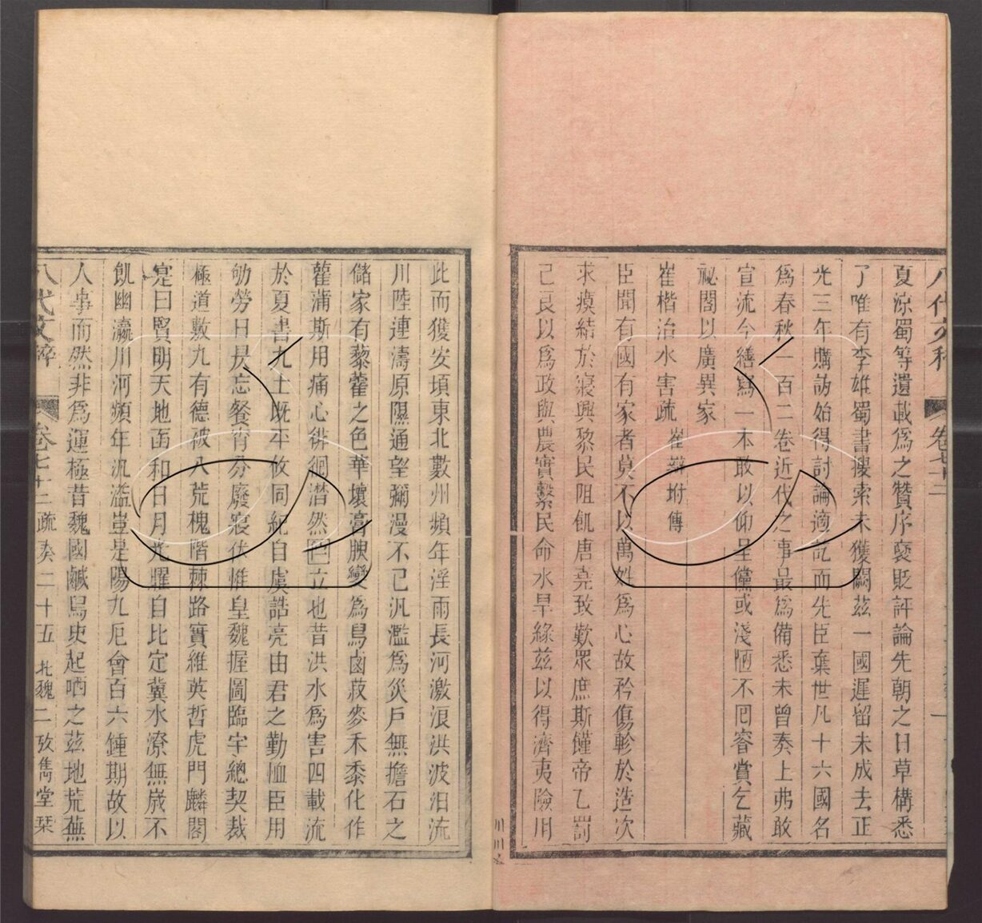 夏涼蜀等遺載爲之贊序褒貶評論先朝之日草構悉
了唯有李雄蜀書搜索未獲闕茲一國遲留未成去正
光三年購訪始得討論適訖而先臣棄世凡十六國名
爲春秋一百二卷近代之事最爲備悉未曾奏上弗敢
宣流今繕寫一本敢以仰呈儻或淺陋不回睿賞乞藏
祕閣以廣異家
崔楷治水害疏 崔辯坿傳
臣聞有國有家者莫不以萬姓爲心故矜傷軫於造次
求瘼結於寢興黎民阻飢唐堯致歎眾庶斯饉帝乙罰
己良以爲政與農實繫民命水旱緣茲以得濟夷險用
此而獲安頃東北數州頻年淫雨長河激浪洪波汨流
川陸連濤原隰通望彌漫不已汎濫爲災戶無擔石之
儲家有藜藿之色華壤膏腴變爲舄鹵菽麥禾黍化作
雚蒲斯用痛心徘徊潛然佇立也昔洪水爲害四載流
於夏書九土既平攸同紀自虞誥亮由君之勤恤臣用
劬勞日昃忘餐宵分廢寢伏惟皇魏握圖臨宇總契裁
極道敷九有德被八荒槐階棘路實維英哲虎門麟閣
寔曰賢明天地函和日月光曜自比定冀水潦無歲不
飢幽瀛川河頻年汎濫豈是陽九厄會百六鍾期故以
人事而然非爲運極昔魏國鹹舄史起哂之茲地荒蕪
八代文粹 卷七十二 疏奏二十五 北魏二 攷雋堂栞